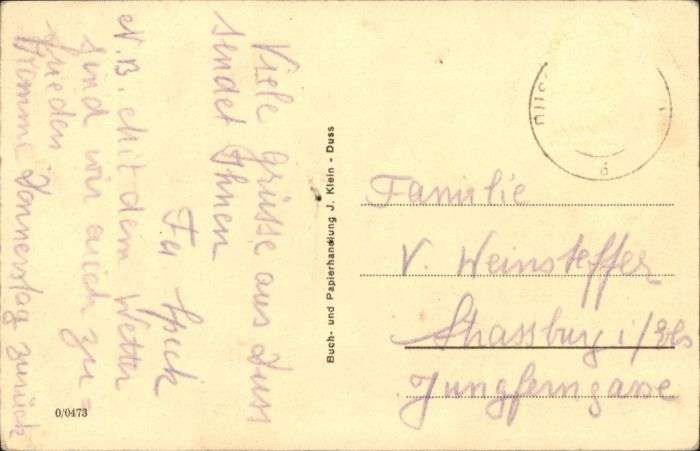 Viele Grüsse aus Duss
sendet Ihnen
Fr Speck
N.B. Mit dem Wetter
sind wir auch zu-
frieden
Komme Donnerstag zurück
Buch- und Papierhandlung J. Klein - Duss
Familie
V. Weinsteffer
Strassburg i/Els
Jungferngasse
0/0473